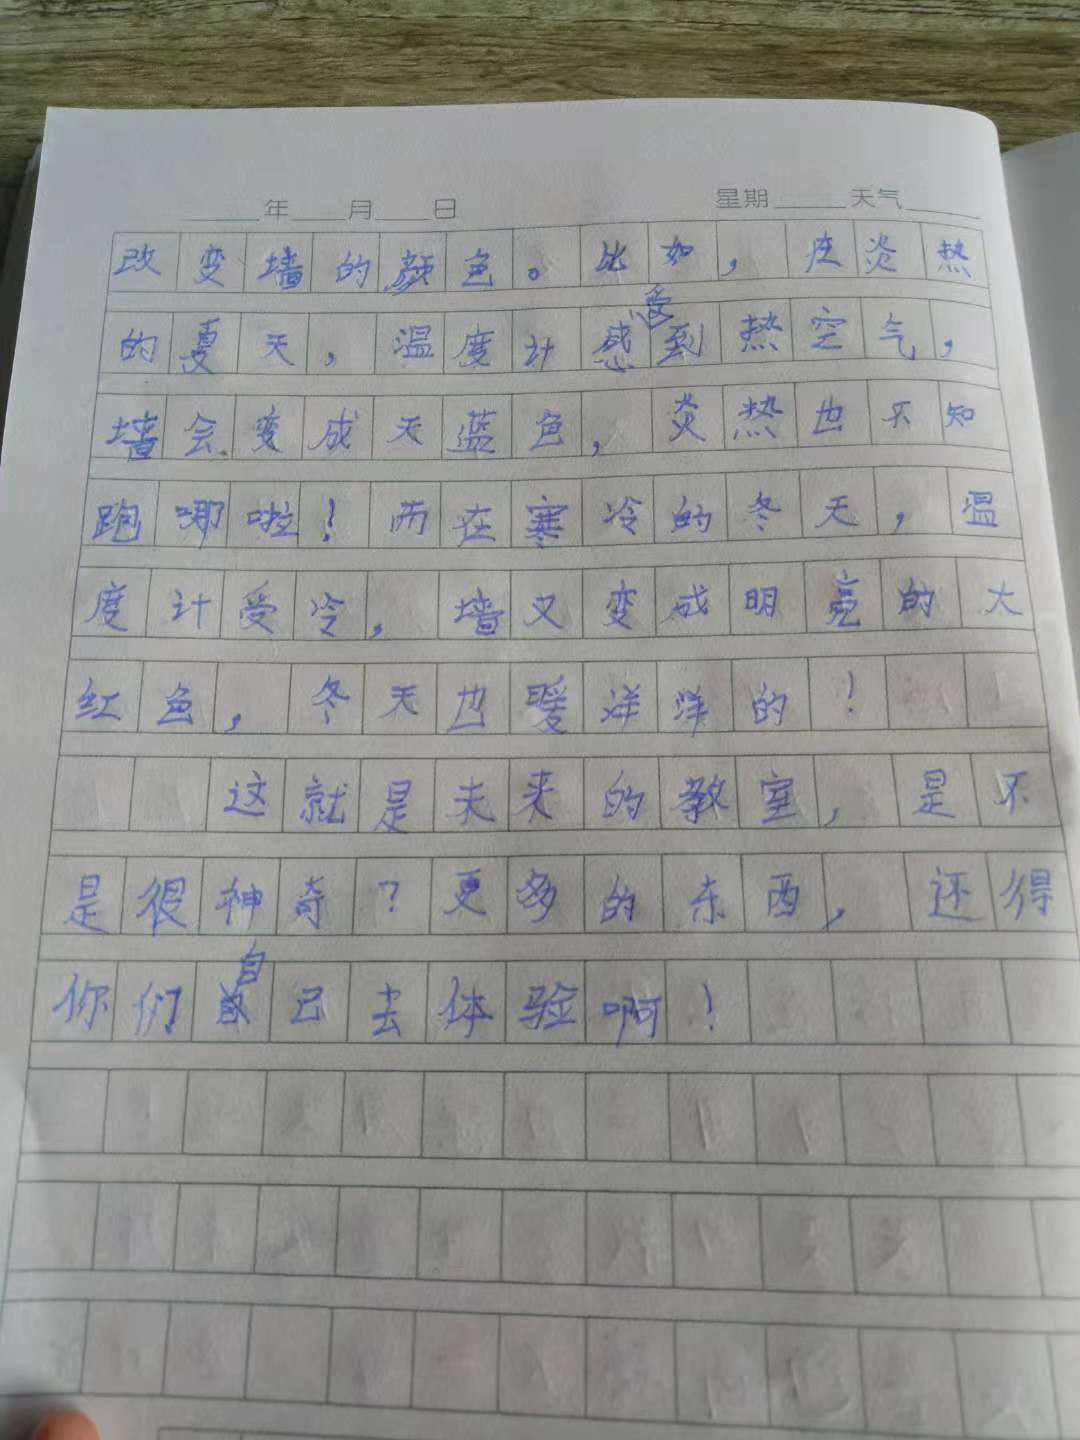 年 月 日 星期 天气
改变墙的颜色。比如，在炎热
的夏天，温度计感受到热空气，
墙会变成天蓝色，炎热也不知
跑哪啦！而在寒冷的冬天，温
度计受冷，墙又变成明亮的大
红色，冬天也暖洋洋的！
这就是未来的教室，是不
是很神奇？更多的东西，还得
你们自己去体验啊！